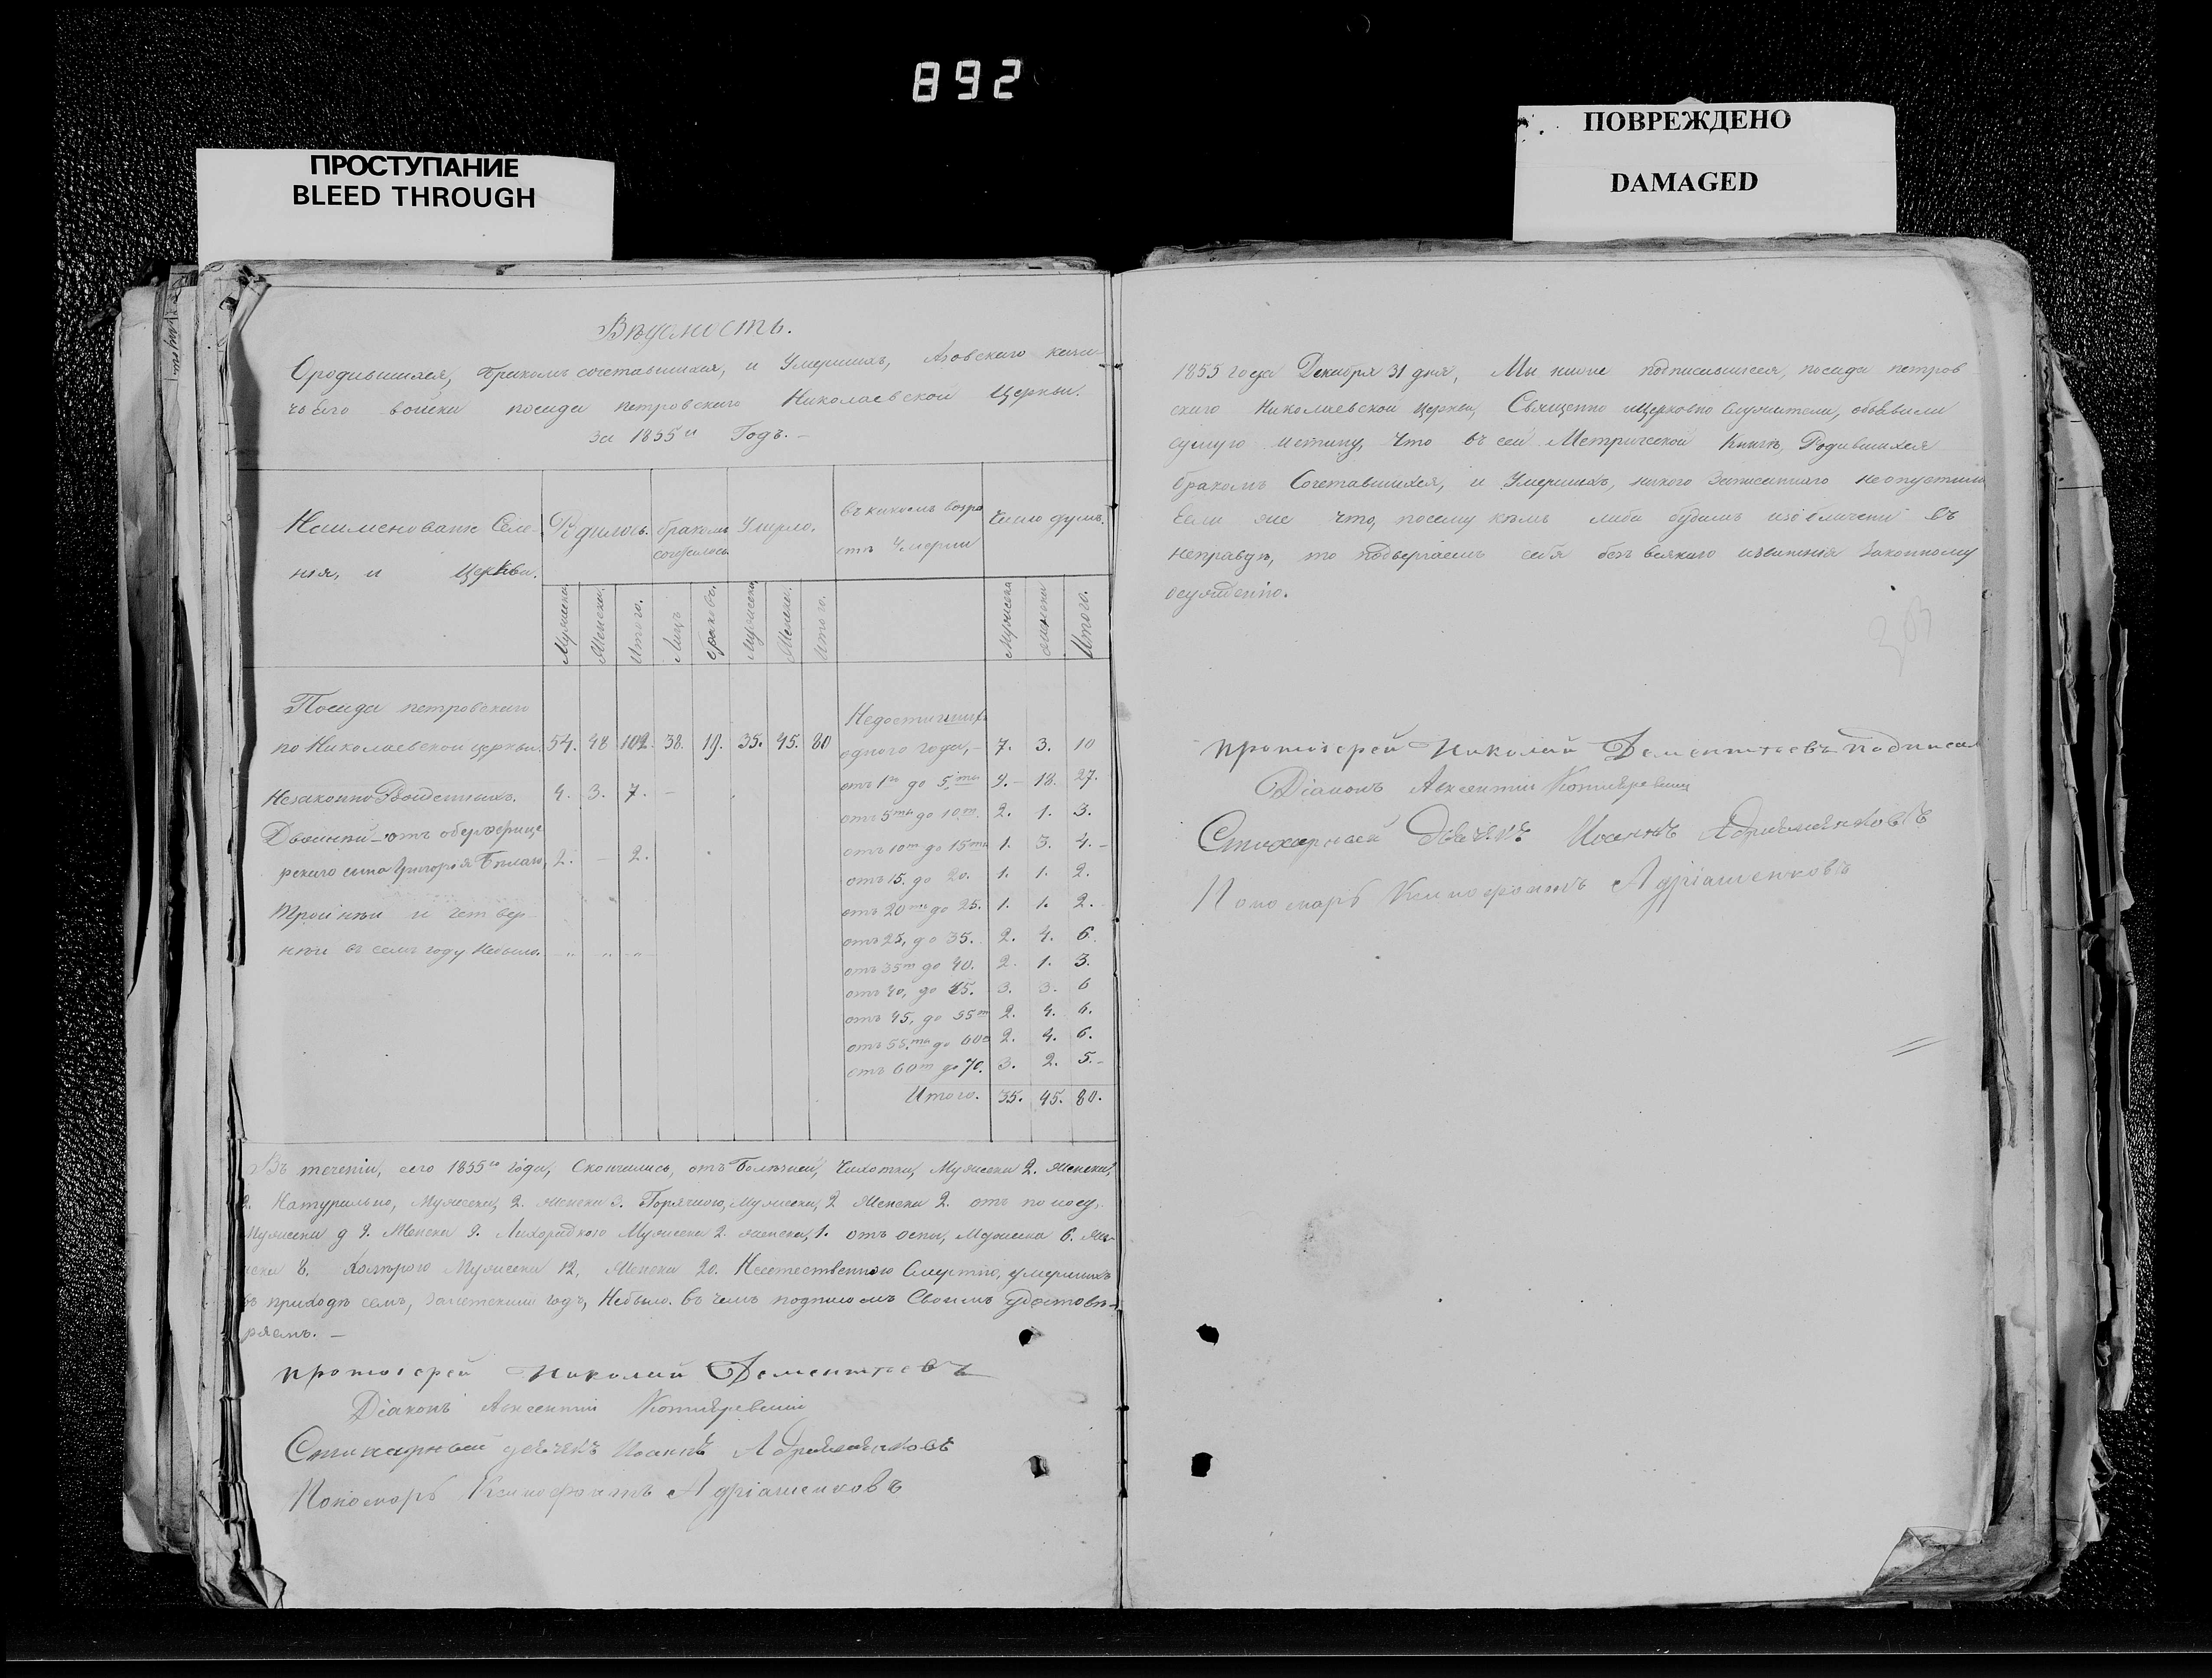 892
ПРОСТУПАНИЕ
BLEED THROUGH
ПОВРЕЖДЕНО
DAMAGED
Вѣдомость.
О родившихся, бракомъ сочетавшихся, и Умершихъ, Азовскаго каза-
чьяго войска посада петровскаго Николаевской Церкви.
За 1855й Годъ. –
Наименованіе Селе-
нія, и Церкви.
Родилось.
бракомъ
Умерло.
въ какомъ возра
стѣ Умерли
Число душъ.
Мужеска
Женска.
Итого.
Лицъ
браковъ.
Мужеска
Женска.
Итого.
Мужеска
женска
Итого.
Посада петровскаго
по Николаевской церкви. 54. 48 102. 38. 19. 35. 45. 80
Незаконно Рожденныхъ. 4. 3. 7. –
Двойни – отъ оберъофице
рскаго сына Григорія 2. – 2.
Тройни и четвер-
ни въ семъ году Небыло. " " "
Недостигшихъ
одного года, – 7. 3. 10
отъ 1го до 5ти 9. – 18. 27.
отъ 5ти до 10ти 2. 1. 3.
отъ 10ти до 15ти 1. 3. 4. –
отъ 15. до 20. 1. 1. 2.
отъ 20ти до 25. 1. 1. 2.
отъ 25, до 35. 2. 4. 6.
отъ 35ти до 40. 2. 1. 3.
отъ 40, до 45. 3. 3. 6
отъ 45, до 55ти 2. 4. 6.
отъ 55ти до 60 2. 4. 6.
отъ 60ти до 70. 3. 2. 5. –
Итого. 35. 45. 80.
Въ теченіи, сего 1855го года, Скончались, отъ Болѣзней, Чахотки, Мужеска 2. женска,
2. Натурально, Мужеска, 2. женска 3. Горячкою, Мужеска, 2 Женска 2. отъ
Мужеска 9. Женска 9. Лихорадкою Мужеска 2. женска, 1. отъ оспы, Мужеска 6. Же-
нска 8. Холерою Мужеска 12, Женска 20. Неестественною Смертію, умершихъ
въ приходѣ семъ, за истекшій годъ, Небыло. въ чемъ подписомъ Своимъ удостовѣ-
ряемъ. –
протоіерей Николай Дементьевъ
Діаконъ Авксентій Котляревскій
Стихарный дьячекъ Иоаннъ Адріашенковъ
Пономарь Ксенофонтъ Адріашенковъ
1855 года Декабря 31 дня, Мы ниже подписавшіеся, посада петров
скаго Николаевской церкви, Священно ицерковно Служители, объявили
сущую истину, что въ сей Метрической Книгѣ, Родившихся
бракомъ Сочетавшихся, и Умершихъ, никого Записаннаго неопустили
Если же что, посему кѣмъ либо будемъ изобличены въ
неправдѣ, то подвергаемъ себя безъ всякаго извиненія Законному
осужденію.
протоіерей Николай Дементьевъ подписал
Діаконъ Авксентій Котляревскій
Стихарный Дьячекъ Иоаннъ Адріашенковъ
Пономарь Ксенофонтъ Адріашенковъ